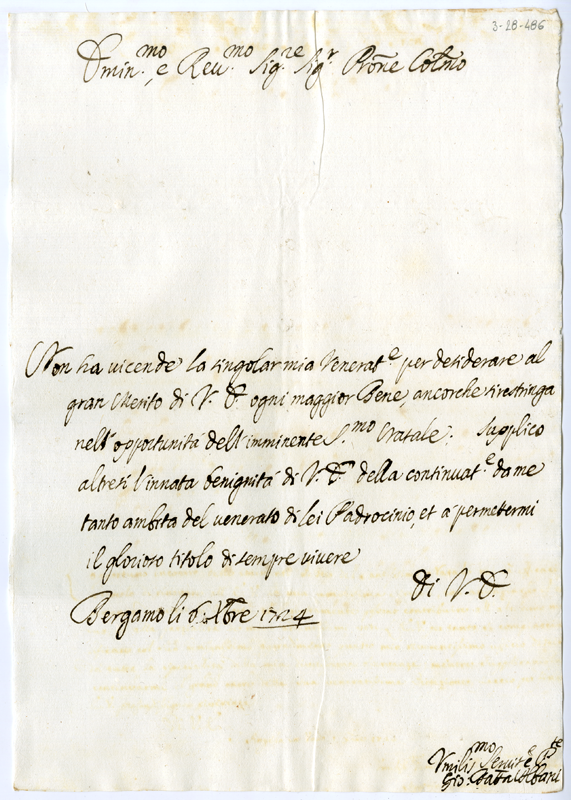 3-28-486
Emin.mo e Reu.mo Sig.re Sig.r Pron̄e Col̄mo
Non ha vicende la singolar mia Venerat.e per desiderare al
gran Merito di V. E. ogni maggior Bene, ancorche si restringa
nell'opportunità dell'imminente S.mo Natale. Supplico
altresì l'innata benignità di V. E. della continuat.e da me
tanto ambita del venerato di lei Padrocinio, et a permetermi
il glorioso titolo di sempre vivere
di V. E.
Bergamo li 6. Xbre 1724
Vmiliss.mo Seruit.e
Gio. Batta